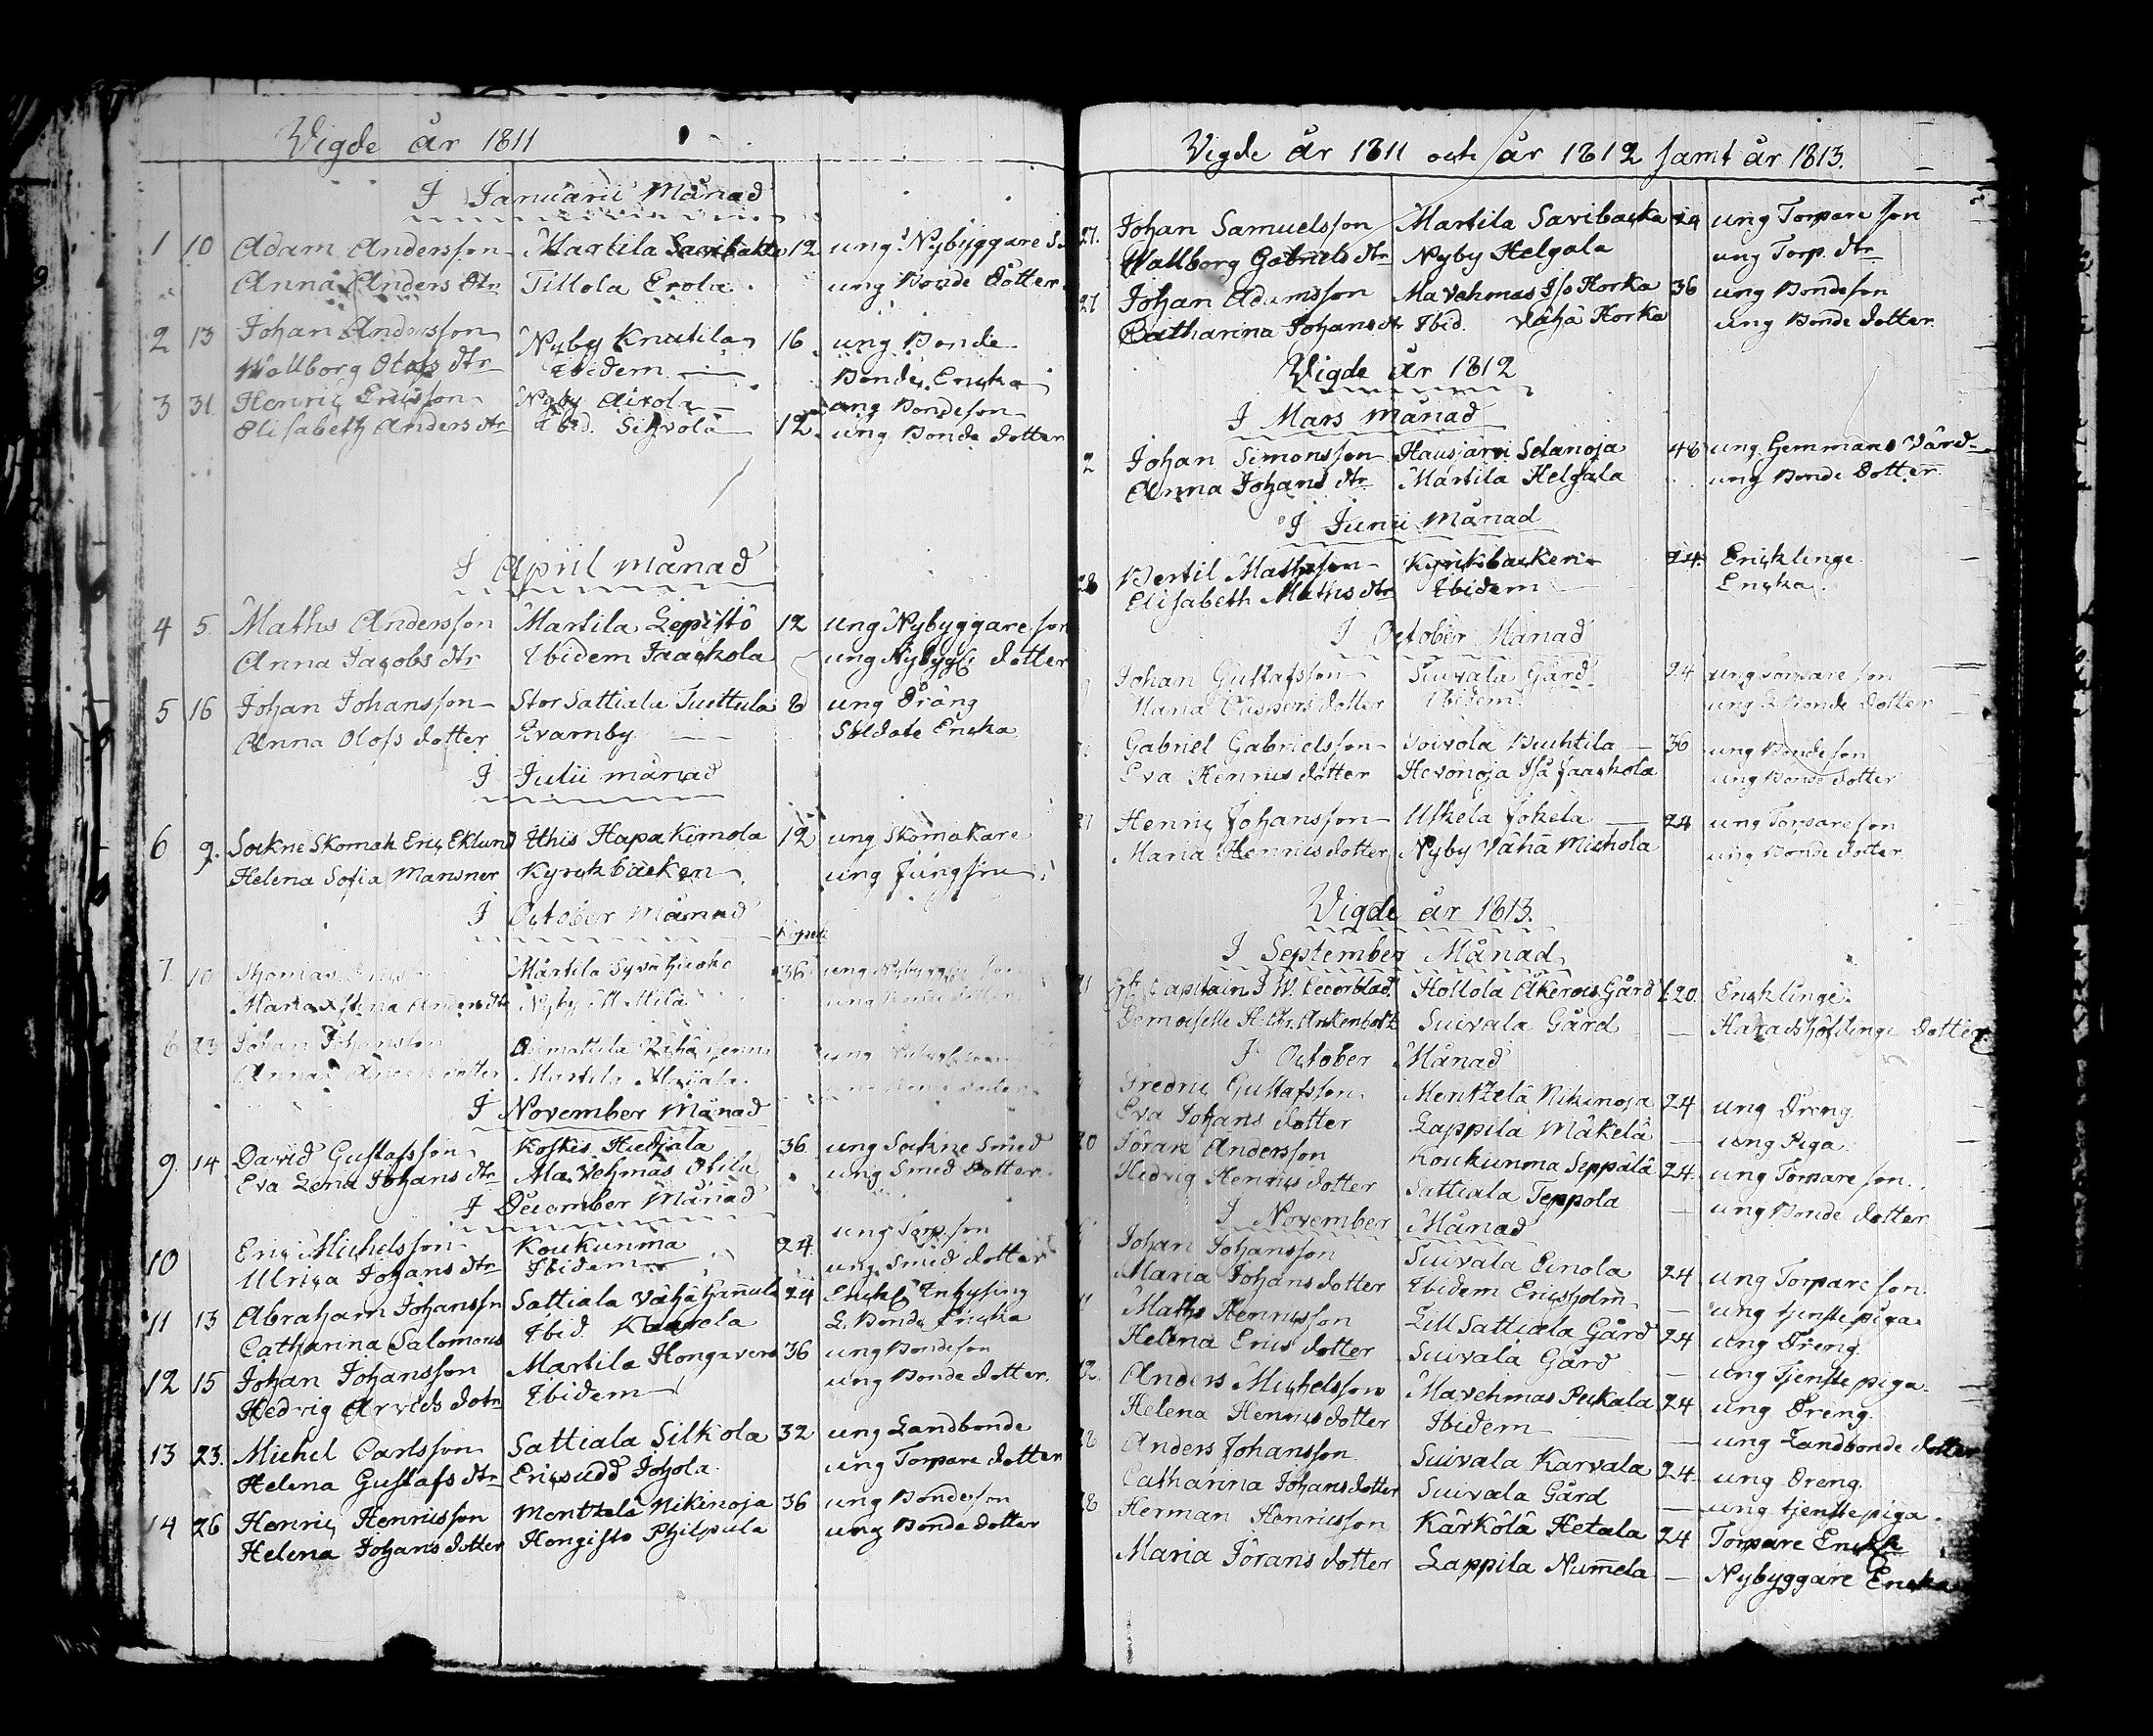 Vigde år 1811
I Januarii Månad
1 10 Adam Andersson Martila Savibakka 12 ung Nybyggare
Anna Anders dtr Tillola Erola ung Bonde Dotter
2 13 Johan Andersson Nyby Knutila 16 ung Bonde
Wallborg Olofs dtr Ibidem Bonde Encka
3 31 Henric Ericsson Nyby Airola ung Bondeson
Elisabeth Anders dtr Ibid. Sihvola 12 ung Bonde dotter
I April månad
4 5 Maths Andersson Martila Lepistö 12 ung Nybyggare son
Anna Jacobs dtr Ibidem Jaackola ung dotter
5 16 Johan Johansson Stor Sattiala Tuittula 8 ung Dräng
Anna Olofs dotter Evarnby Soldate Encka
I Julii månad
6 9. Sockne Skomak Eric Eklund Ithis Hapakimola 12 ung Skomakare
Helena Sofia Mansner Kyrckbacken ung Jungfru
I October Månad
7. 10 Thomas Martila 36
Maria Stina Anders dtr Nyby Mattila
23 Johan Johansson
Anna dotter Martila
I November Månad
9. 14 David Gustafsson Koskis Hiedjala 36 ung Sockne Smed
Eva Lena Johans dtr Ma. Vehmas Otila ung Smed Dotter
I December Månad
10 Eric Michelsson Koukunma 24 ung Torp. son
Ulrica Johans dtr Ibidem ung Smed dotter
11 13 Abraham Johansson Sattiala Vähä Hannula 24 Inhysing
Catharina Salomons Ibid. Kaarela L. Bonde Encka
12 15 Johan Johansson Martila Hongavero 36 ung Bondeson
Hedvig Arvids dotr Ibidem ung Bonde dotter.
13 23. Michel Carlsson Sattiala Silkola 32 ung Landbonde
Helena Gustafs dtr Ericsudd Johola ung Torpare dotter
14 26 Henric Henricsson Mentzelä Nikinoja 36 ung Bondeson
Helena Johans dotter Hongisto Philpula ung Bonde dotter
Vigde år 1811 och år 1812 samt år 1813.
27. Johan Samuelsson Martila Savibacka 24 ung Torpare son
Wallborg Gabriels dtr Nyby Helgala ung Torp. dtr
27 Johan Adamsson Ma Vehmas Iso Horka 36 ung Bondeson
Catharina Johans dr Ibid. Vähä Horka ung Bonde dotter.
Vigde år 1812
I Mars månad
2 Johan Simonsson Hausjärvi Selänoja 48 ung Hemmans Värd
Anna Johans dtr Martila Helgala ung Bonde Dotter
I Junii Månad
28 Bertil Mathsson Kyrckbacken 24. Encklinge
Elisabeth Maths dtr Ibidem Encka
I October Månad
Johan Gustafsson Suivala Gård 24 ung Torpare son
Maria dotter Ibidem ung Bonde dotter
Gabriel Gabrielsson Puchtila 36 ung Bondeson
Eva Henrics dotter Hevonoja Iså Jaackola ung Bonde dotter
27 Henric Johansson Uskela Jokela 24 ung Torpareson
Maria Henrics dotter Nyby Vähä Mickola ung Bonde dotter
Vigde år 1813.
I September Månad
Capitain J. W. Hollola Åkerois Gård 1.20. Encklinge.
Demoiselle Suivala Gård Häradshöfdinge Dotter
I October Månad
Fredric Gustafsson Mentzelä Nikinoja 24 ung Dreng.
Eva Johans dotter Lappila Mäkelä ung Piga
20 Jöran Andersson Koukunma Seppälä 24. ung Torpare son.
Hedvig Henrics dotter Sattiala Teppola ung Bonde dotter
I November Månad
Johan Johansson Suivala Einola 24 ung Torpare son.
Maria Johans dotter Ibidem Ericsholm ung tjenstepiga.
Maths Henricsson Lill Sattiala Gård 24 ung Dreng.
Helena Erics dotter Suivala Gård ung Tjenstepiga.
12. Anders Michelsson Mavehmas Peckala 24 ung Dreng.
Helena Henrics dotter Ibidem ung Landbonde dotter
28 Anders Johansson Suivala Karvala 24. ung Dreng.
Catharina Johans dotter Suivala Gård ung tjenstepiga.
28 Herman Henricsson Kärkölä Hetala 24 Torpare
Maria Jörans dotter Lappila Numela Nybyggare Encka